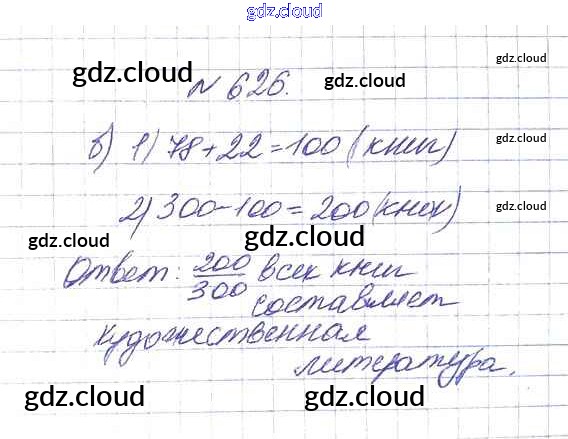 gdz.cloud
gdz.cloud
gdz.cloud № 626. gdz.cloud
б) 1) 78+22=100 (книг)
gdz.cloud
2) 300-100=200 (книг)
gdz.cloud gdz.cloud gdz.cloud
Ответ: 200/300 всех книг
составляет
gdz.cloud
художественная
литература.
gdz.cloud gdz.cloud gdz.cloud